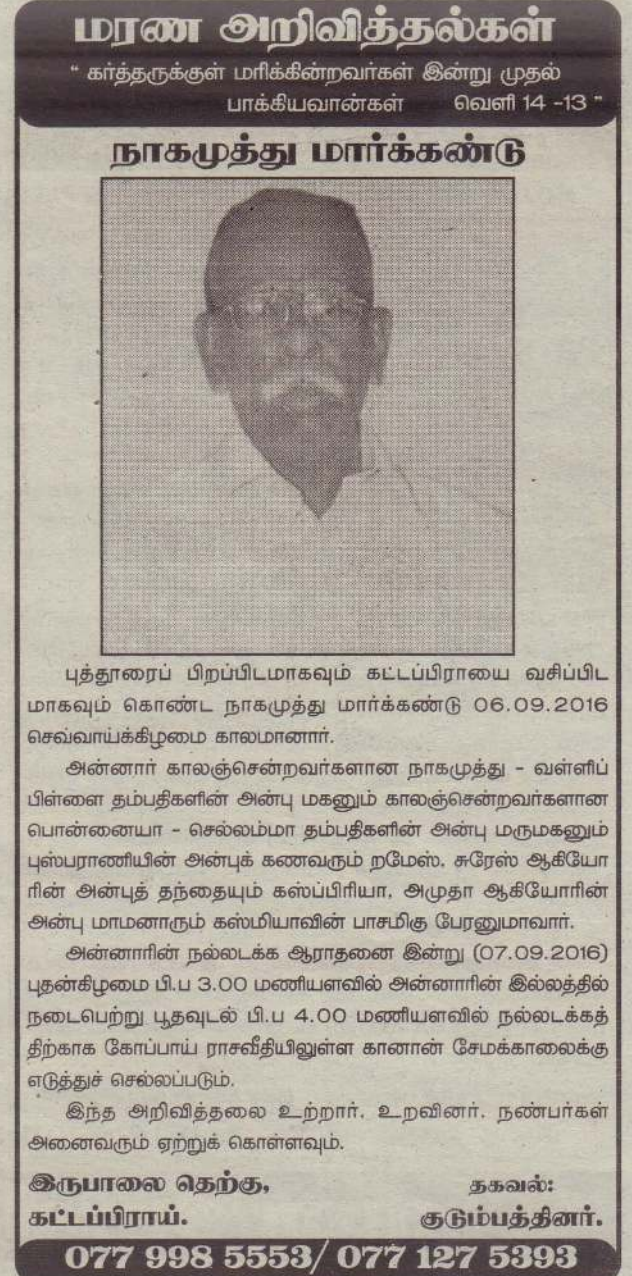 மரண அறிவித்தல்கள்
“ கர்த்தருக்குள் மரிக்கின்றவர்கள் இன்று முதல்
பாக்கியவான்கள் வெளி 14 -13 ”
நாகமுத்து மார்க்கண்டு
புத்தூரைப் பிறப்பிடமாகவும் கட்டப்பிராயை வசிப்பிட
மாகவும் கொண்ட நாகமுத்து மார்க்கண்டு 06.09.2016
செவ்வாய்க்கிழமை காலமானார்.
அன்னார் காலஞ்சென்றவர்களான நாகமுத்து - வள்ளிப்
பிள்ளை தம்பதிகளின் அன்பு மகனும் காலஞ்சென்றவர்களான
பொன்னையா - செல்லம்மா தம்பதிகளின் அன்பு மருமகனும்
புஸ்பராணியின் அன்புக் கணவரும் றமேஸ், சுரேஸ் ஆகியோ
ரின் அன்புத் தந்தையும் கஸ்ப்பிரியா, அமுதா ஆகியோரின்
அன்பு மாமனாரும் கஸ்மியாவின் பாசமிகு பேரனுமாவார்.
அன்னாரின் நல்லடக்க ஆராதனை இன்று (07.09.2016)
புதன்கிழமை பி.ப 3.00 மணியளவில் அன்னாரின் இல்லத்தில்
நடைபெற்று பூதவுடல் பி.ப 4.00 மணியளவில் நல்லடக்கத்
திற்காக கோப்பாய் ராசவீதியிலுள்ள கானான் சேமக்காலைக்கு
எடுத்துச் செல்லப்படும்.
இந்த அறிவித்தலை உற்றார், உறவினர், நண்பர்கள்
அனைவரும் ஏற்றுக் கொள்ளவும்.
இருபாலை தெற்கு, தகவல்:
கட்டப்பிராய். குடும்பத்தினர்.
077 998 5553/ 077 127 5393